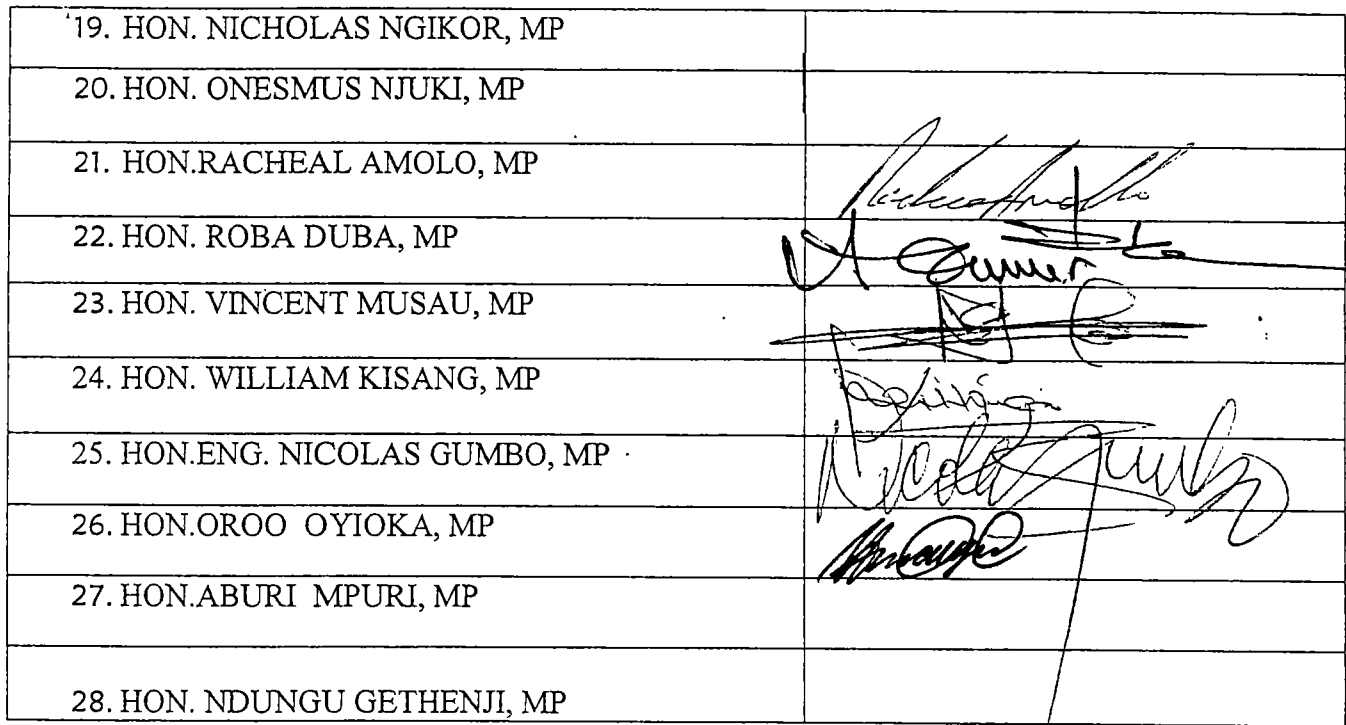 19. HON. NICHOLAS NGIKOR, MP
20. HON. ONESMUS NJUKI, MP
21. HON.RACHEAL AMOLO, MP
22. HON. ROBA DUBA, MP
23. HON. VINCENT MUSAU, MP
24. HON. WILLIAM KISANG, MP
25. HON.ENG. NICOLAS GUMBO, MP
26. HON.OROO OYIOKA, MP
27. HON.ABURI MPURI, MP
28. HON. NDUNGU GETHENJI, MP